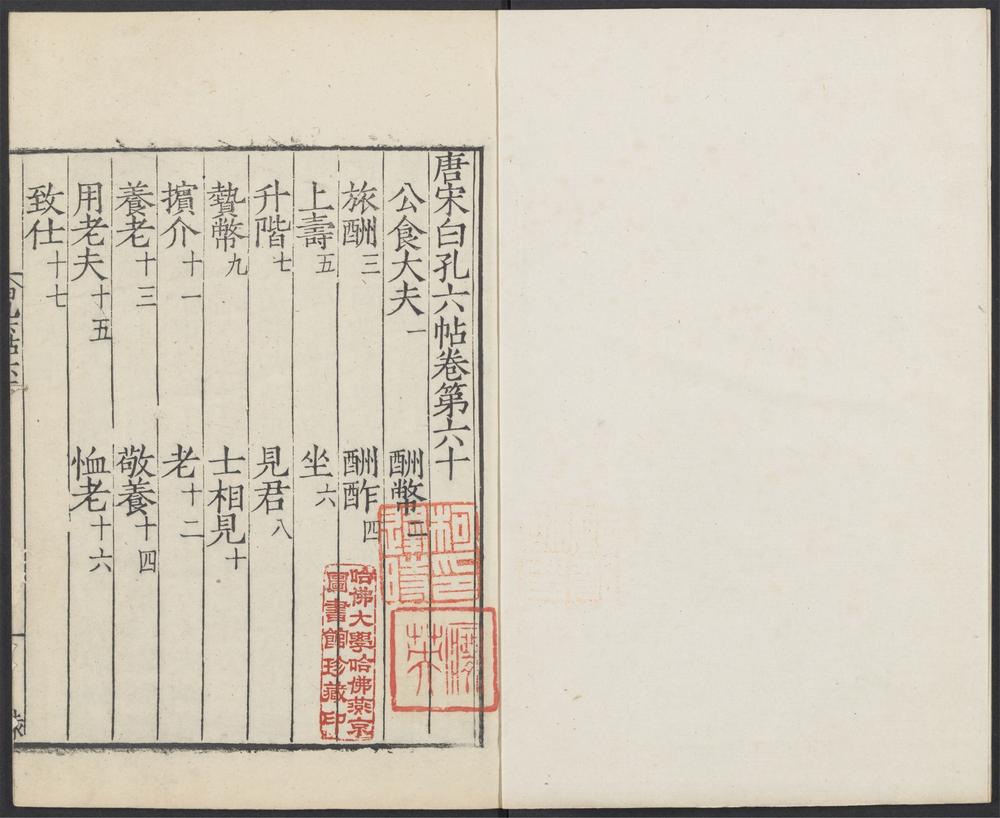 唐宋白孔六帖卷第六十
公食大夫一 酬幣二
旅酬三 酬酢四
上壽五 坐六
升階七 見君八
贄幣九 士相見十
擯介十一 老十二
養老十三 敬養十四
用老夫十五 恤老十六
致仕十七
哈佛大學哈佛燕京
圖書館珍藏印